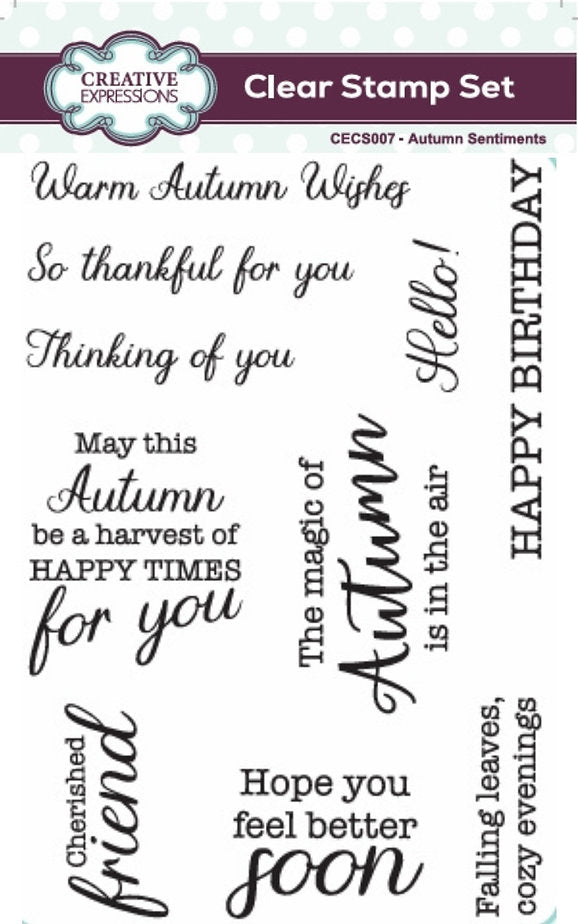 CREATIVE
EXPRESSIONS
Clear Stamp Set
CECS007 - Autumn Sentiments
Warm Autumn Wishes
So thankful for you
Thinking of you
Hello!
HAPPY BIRTHDAY
May this
Autumn
be a harvest of
HAPPY TIMES
for you
The magic of
Autumn
is in the air
Cherished
friend
Hope you
feel better
soon
Falling leaves,
cozy evenings